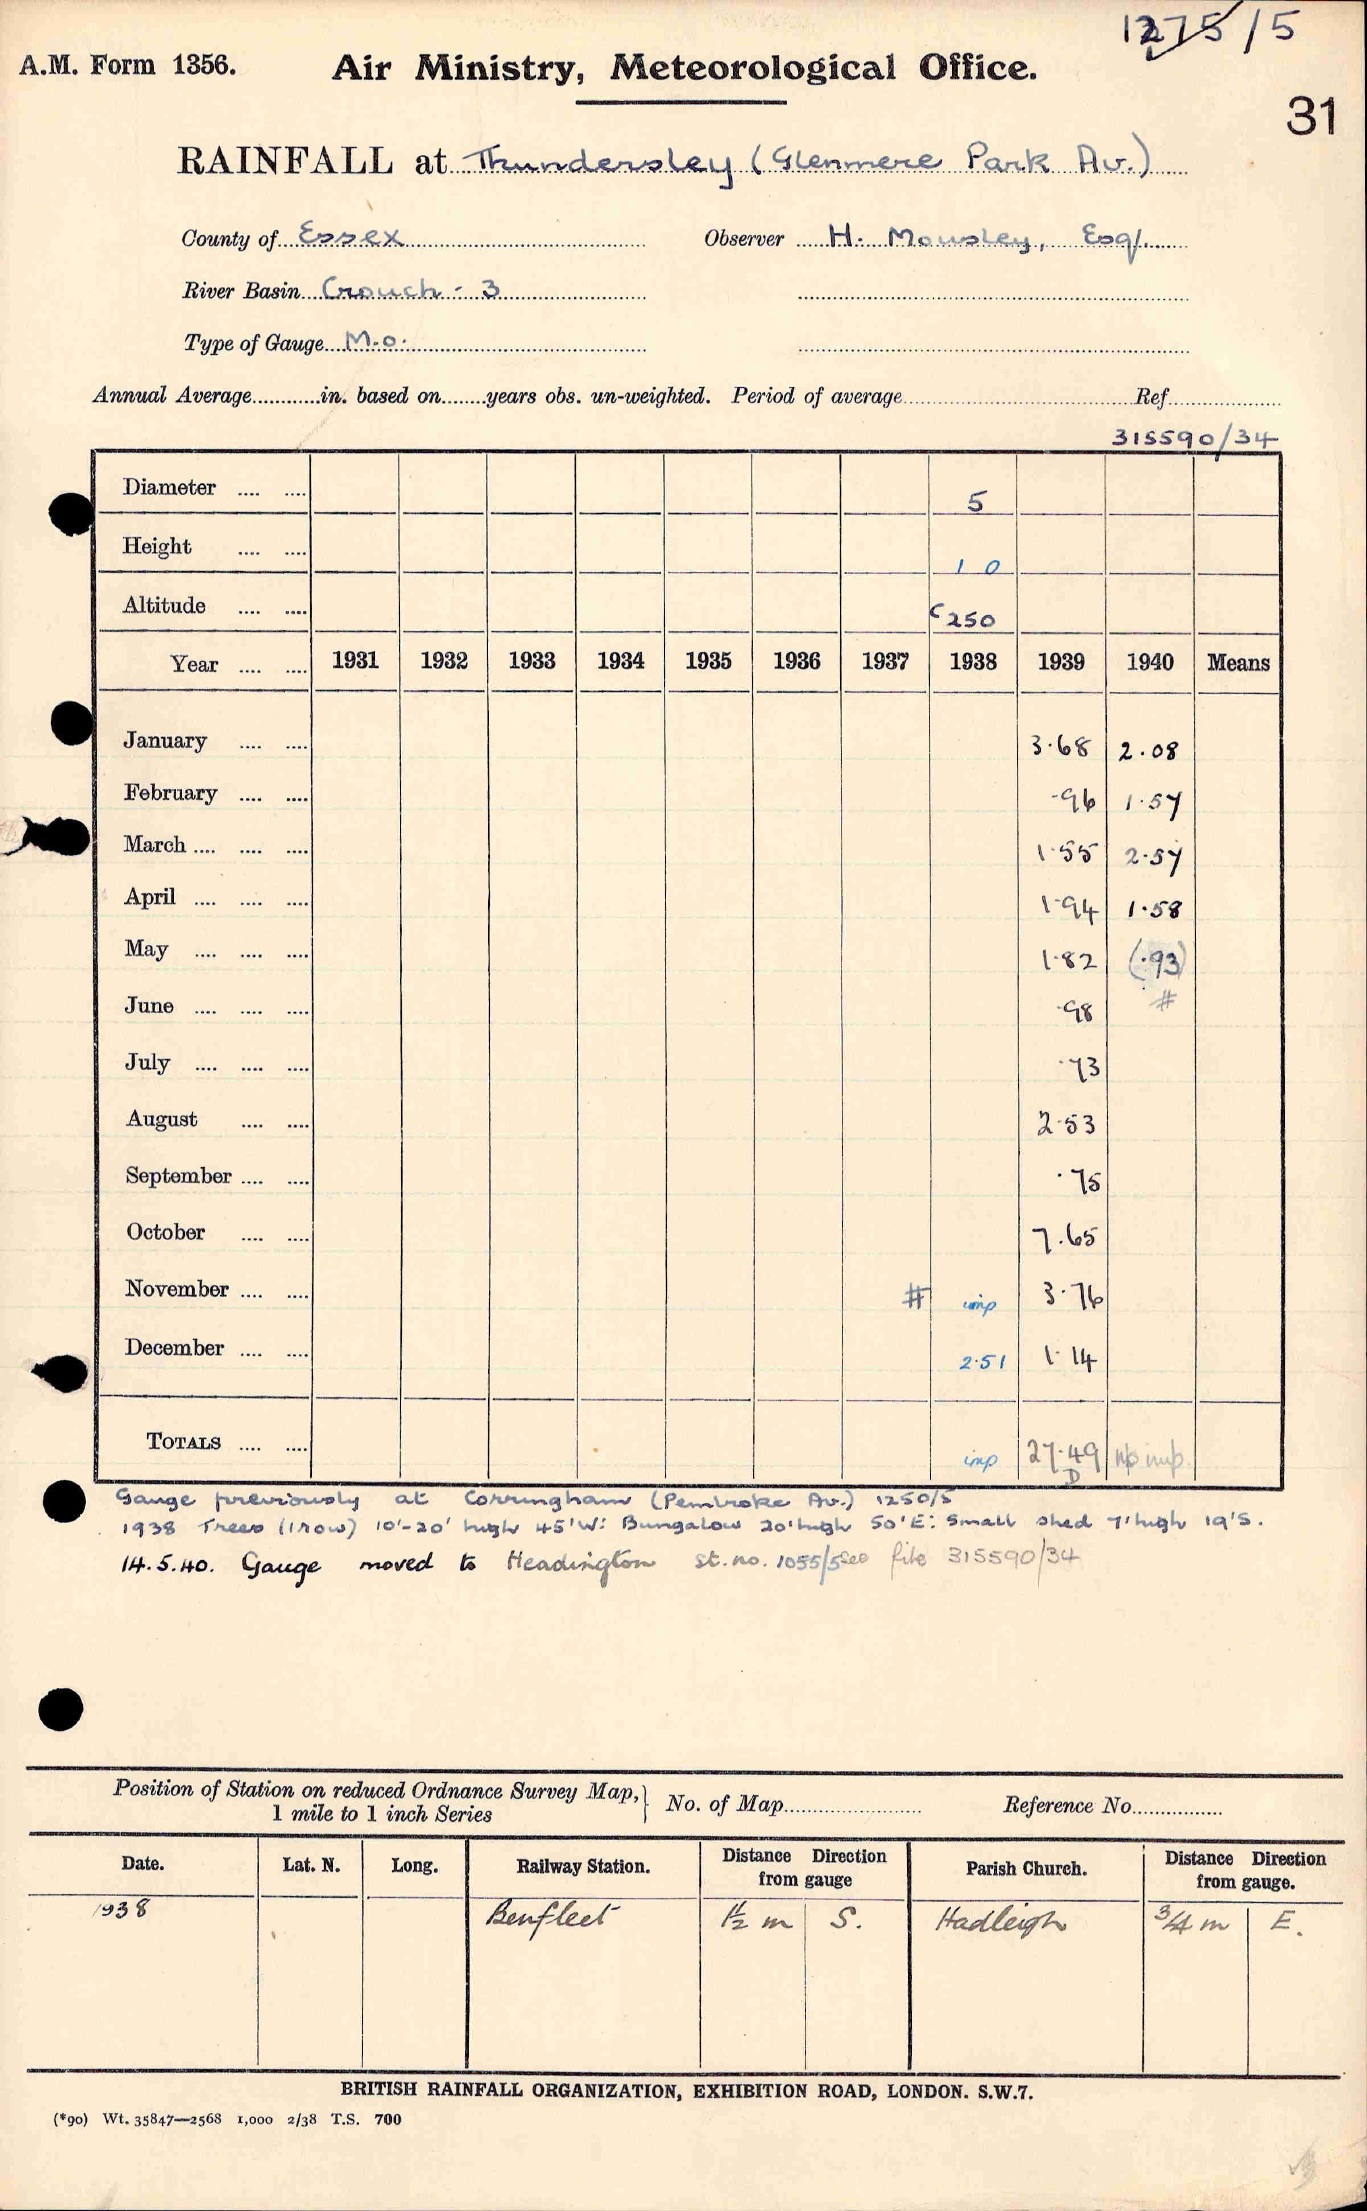 1275/5
A.M. Form 1356. Air Ministry, Meteorological Office.
31
RAINFALL at Thundersley (Glenmere Park Av.)
County of Essex Observer H. Mousley, Esq.
River Basin Crouch - 3
Type of Gauge M.O.
Annual Average in. based on years obs. un-weighted. Period of average Ref
315590/34
Diameter 5
Height 1 0
Altitude c 250
Year 1931 1932 1933 1934 1935 1936 1937 1938 1939 1940 Means
January 3.68 2.08
February .96 1.57
March 1.55 2.57
April 1.94 1.58
May 1.82 (.93)
June .98 #
July .73
August 2.53
September .75
October 7.65
November # imp 3.76
December 2.51 1.14
TOTALS imp 27.49 imp
D
Gauge previously at Corringham (Pembroke Av.) 1250/5
1938 Trees (1 row) 10'-20' high 45'W: Bungalow 20' high 50'E: Small shed 7' high 19'S.
14.5.40. Gauge moved to Headington St. no. 1055/5 see file 315590/34
Position of Station on reduced Ordnance Survey Map, 1 mile to 1 inch Series } No. of Map Reference No.
Date. Lat. N. Long. Railway Station. Distance Direction from gauge Parish Church. Distance Direction from gauge.
1938 Benfleet 1½ m S. Hadleigh ¾ m E.
BRITISH RAINFALL ORGANIZATION, EXHIBITION ROAD, LONDON. S.W.7.
(*90) Wt. 35847—2568 1,000 2/38 T.S. 700